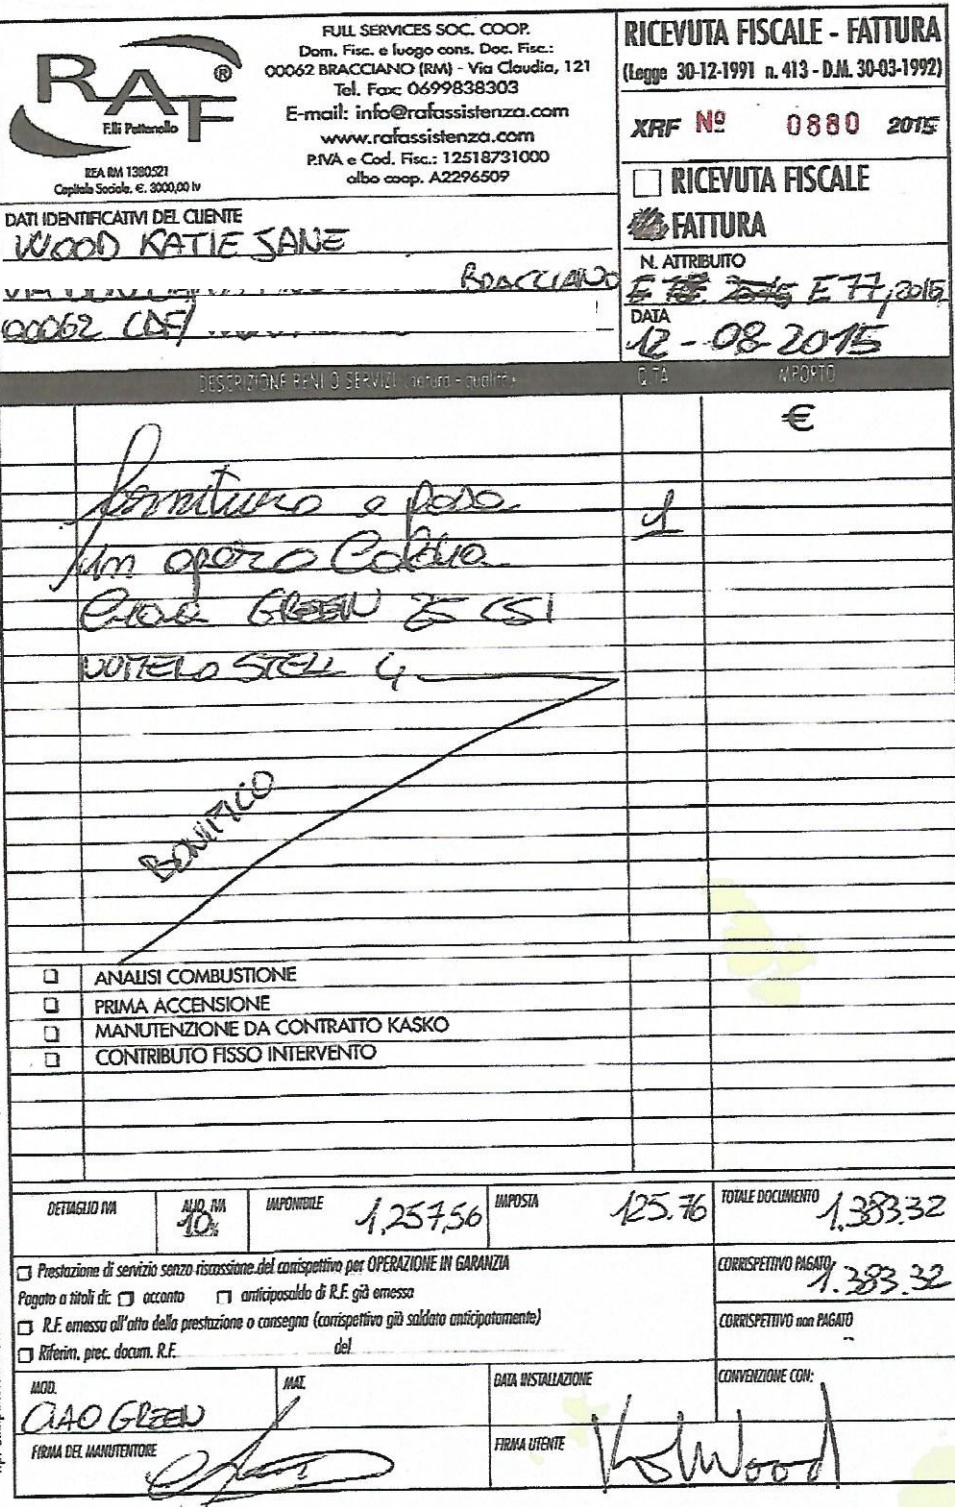 RAF ®
F.lli Pattenello
REA RM 1380521
Capitale Sociale. €. 3000,00 iv
FULL SERVICES SOC. COOP.
Dom. Fisc. e luogo cons. Doc. Fisc.:
00062 BRACCIANO (RM) - Via Claudia, 121
Tel. Fax: 0699838303
E-mail: info@rafassistenza.com
www.rafassistenza.com
P.IVA e Cod. Fisc.: 12518731000
albo coop. A2296509
RICEVUTA FISCALE - FATTURA
(Legge 30-12-1991 n. 413 - D.M. 30-03-1992)
XRF Nº 0880 2015
RICEVUTA FISCALE
FATTURA
N. ATTRIBUITO
E 77, 2015
DATA
12-08-2015
DATI IDENTIFICATIVI DEL CLIENTE
WOOD KATIE JANE
BRACCIANO
00062
DESCRIZIONE BENI O SERVIZI (natura - qualità) Q.TÀ IMPORTO
€
fornitura e posa 1
in opera Caldaia
Ciao GREEN 25 CSI
NUMERO STELL 4
BONIFICO
ANALISI COMBUSTIONE
PRIMA ACCENSIONE
MANUTENZIONE DA CONTRATTO KASKO
CONTRIBUTO FISSO INTERVENTO
DETTAGLIO IVA
ALIQ. IVA
10%
IMPONIBILE
1,257,56
IMPOSTA
125.76
TOTALE DOCUMENTO
1.383.32
Prestazione di servizio senza riscossione del corrispettivo per OPERAZIONE IN GARANZIA
Pagato a titoli di: acconto anticiposaldo di R.F. già emessa
R.F. emessa all'atto della prestazione o consegna (corrispettivo già saldato anticipatamente)
Riferim. prec. docum. R.F. del
CORRISPETTIVO PAGATO
1.383.32
CORRISPETTIVO non PAGATO
MOD.
CIAO GREEN
MAT.
DATA INSTALLAZIONE
CONVENZIONE CON:
FIRMA DEL MANUTENTORE
FIRMA UTENTE
KJWood